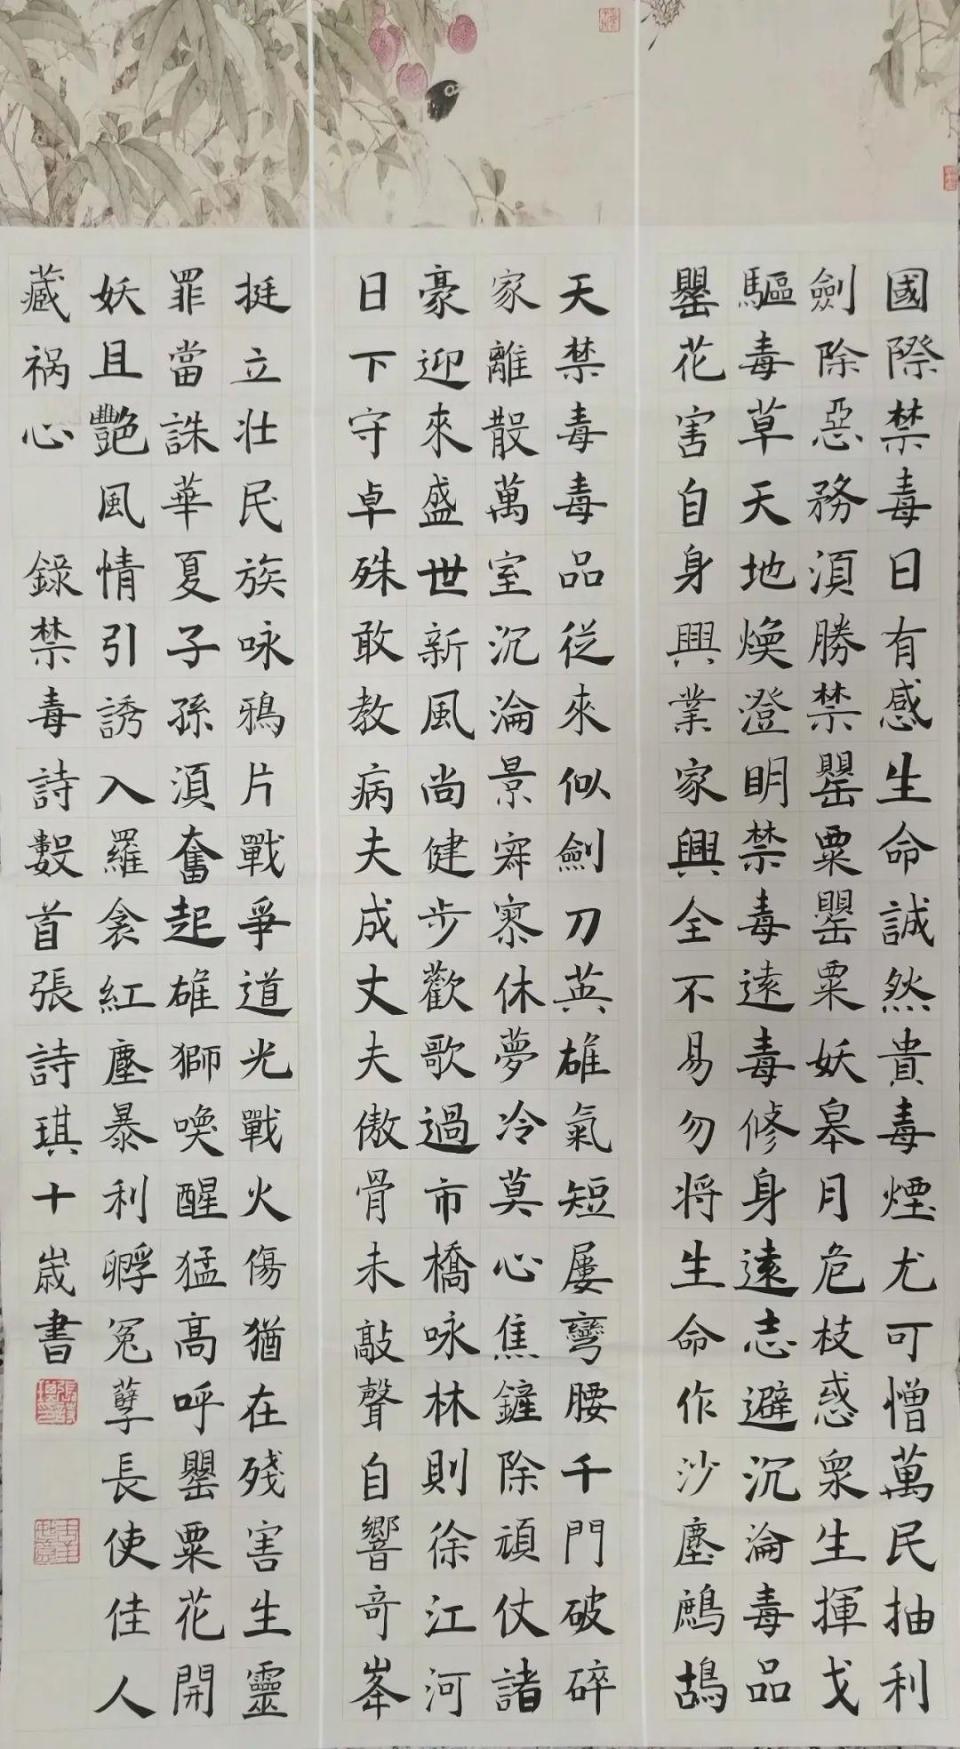 國際禁毒日有感生命誠然貴毒煙尤可憎萬民抽利
劍除惡務須勝禁罌粟罌粟妖皋月危枝惑衆生揮戈
驅毒草天地煥澄明禁毒遠毒修身遠志避沉淪毒品
罌花害自身興業家興全不易勿將生命作沙塵鷓鴣
天禁毒毒品從來似劍刀英雄氣短屢彎腰千門破碎
家離散萬室沉淪景寂寥休夢冷莫心焦鏟除頑仗諸
豪迎來盛世新風尚健步歡歌過市橋咏林則徐江河
日下守卓殊敢教病夫成丈夫傲骨未敲聲自響奇峯
挺立壯民族咏鴉片戰爭道光戰火傷猶在殘害生靈
罪當誅華夏子孫須奮起雄獅喚醒猛高呼罌粟花開
妖且艷風情引誘入羅衾紅塵暴利孵冤孽長使佳人
藏祸心 錄禁毒詩數首張詩琪十歲書